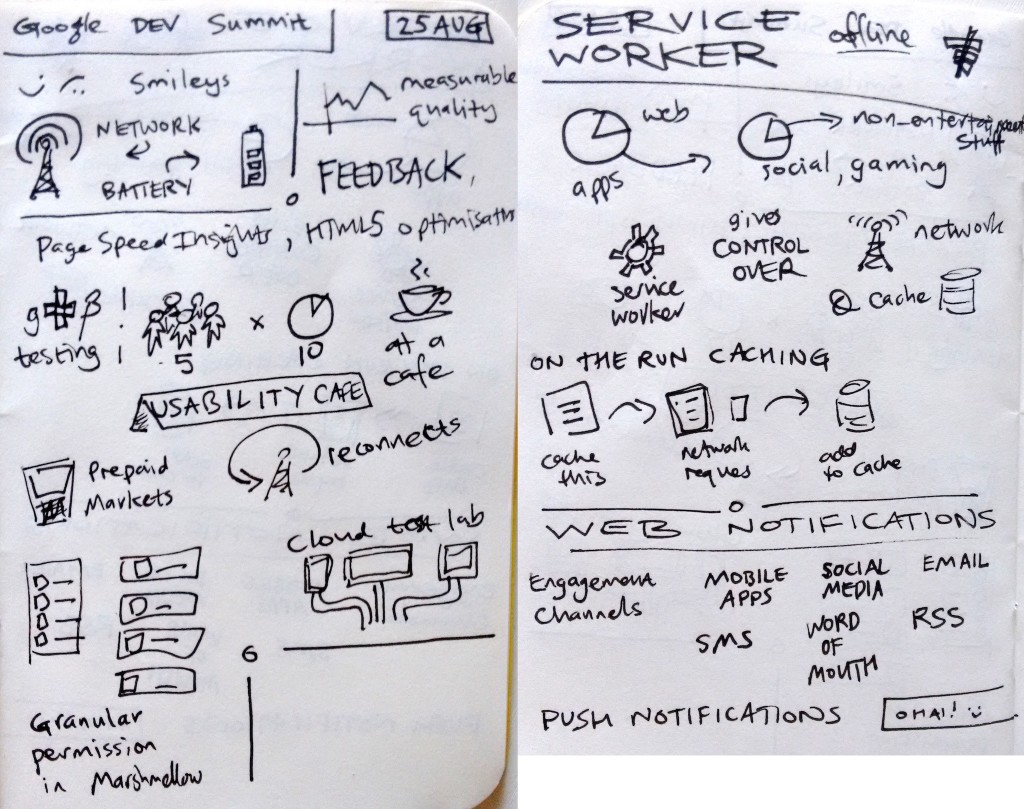 Google DEV Summit
25 AUG
Smileys
NETWORK
BATTERY
measurable
quality
FEEDBACK,
Page Speed Insights, HTML5 optimisatn
g+ β !
testing !
5
x
10
at a
cafe
USABILITY CAFE
Prepaid
Markets
reconnects
Cloud test lab
Granular
permission
in Marshmellow
6
SERVICE
WORKER
offline
web
apps
non-entertainment
stuff
social, gaming
service
worker
gives
CONTROL
OVER
network
& cache
ON THE RUN CACHING
cache
this
network
reques
add
to cache
WEB NOTIFICATIONS
Engagement
Channels
MOBILE
APPS
SOCIAL
MEDIA
EMAIL
SMS
WORD
OF
MOUTH
RSS
PUSH NOTIFICATIONS
OHAI! :)